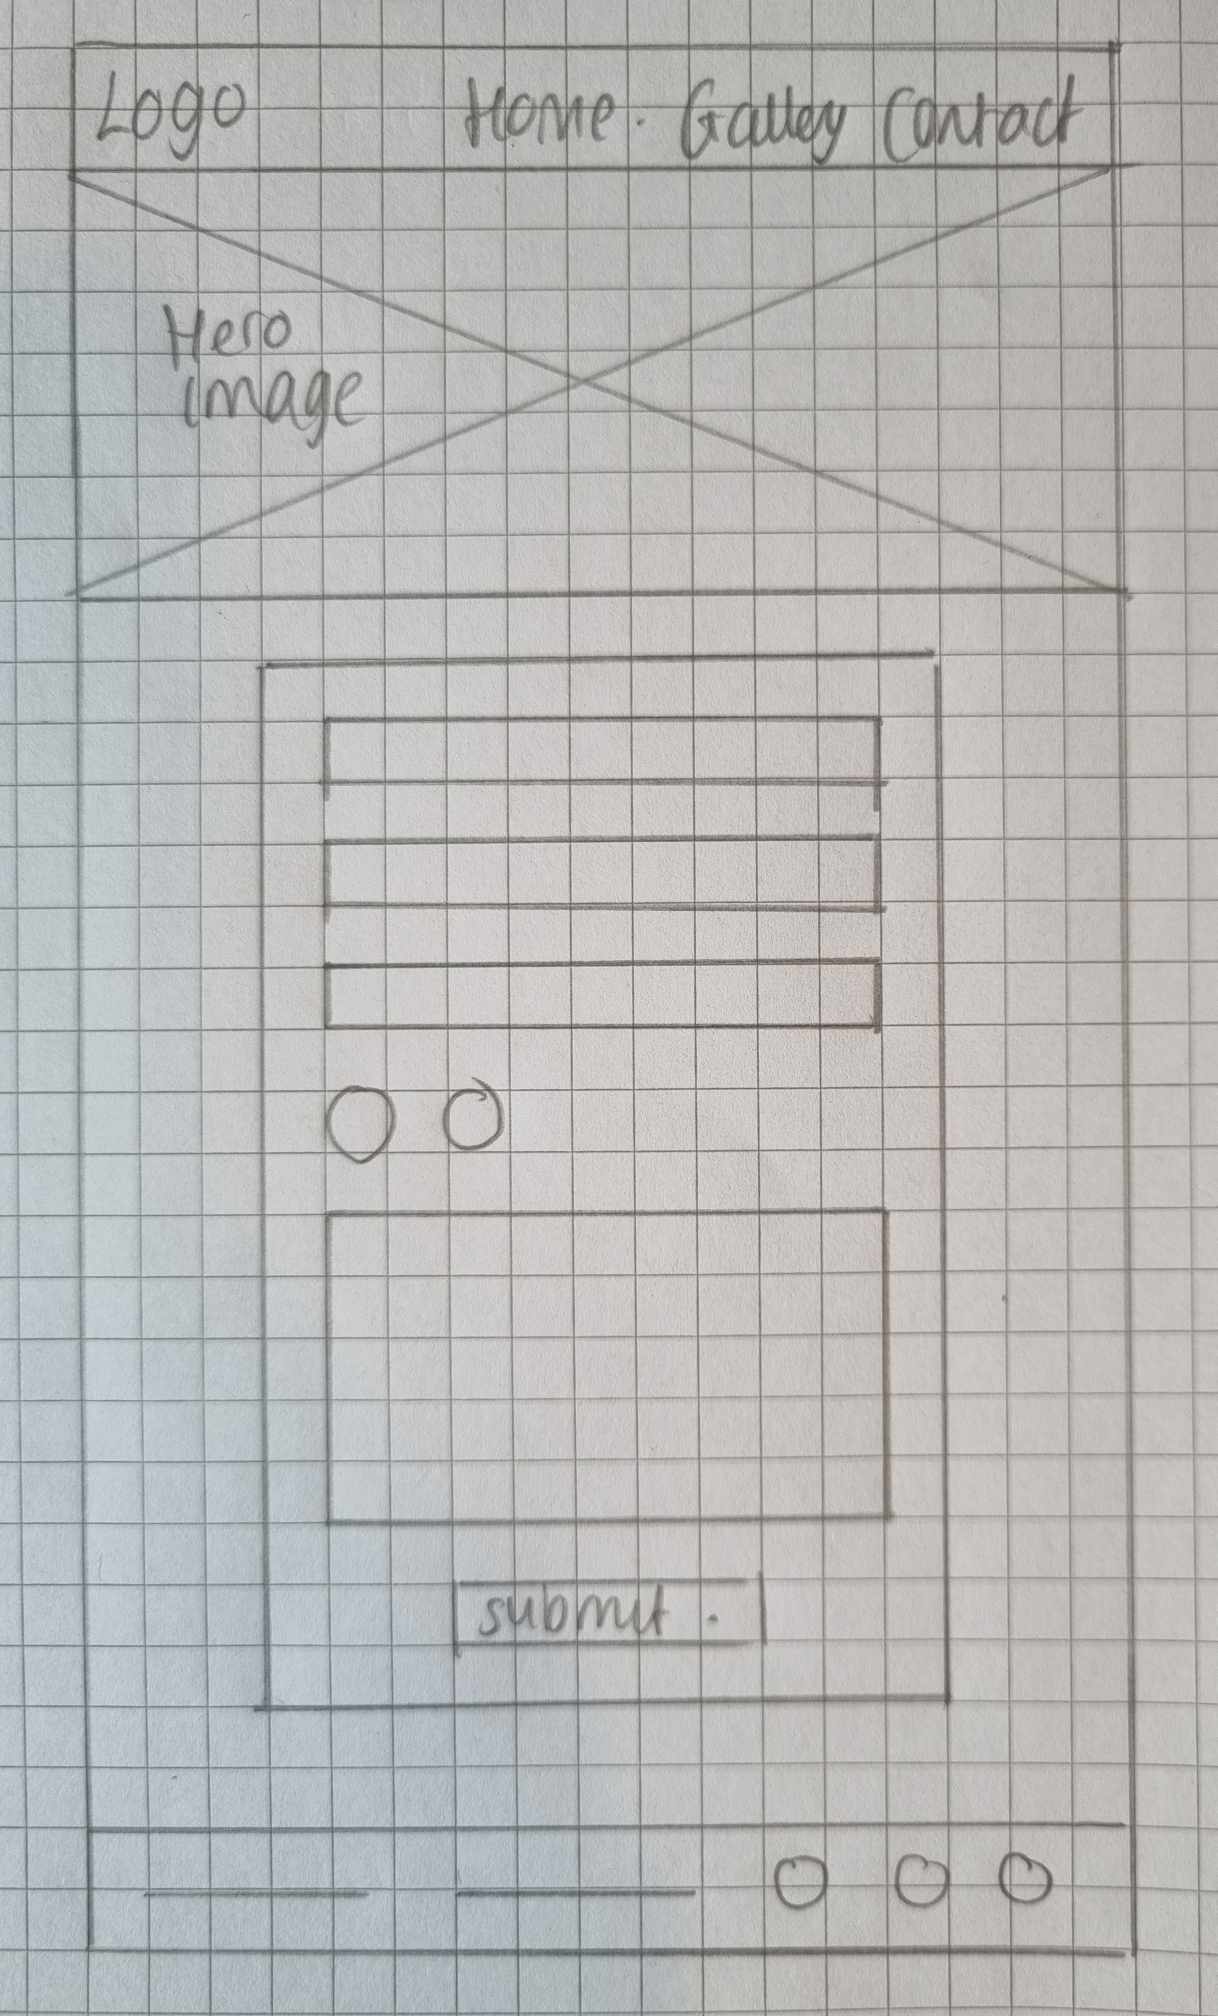 Logo Home. Gallery Contact
Hero
image
submit .